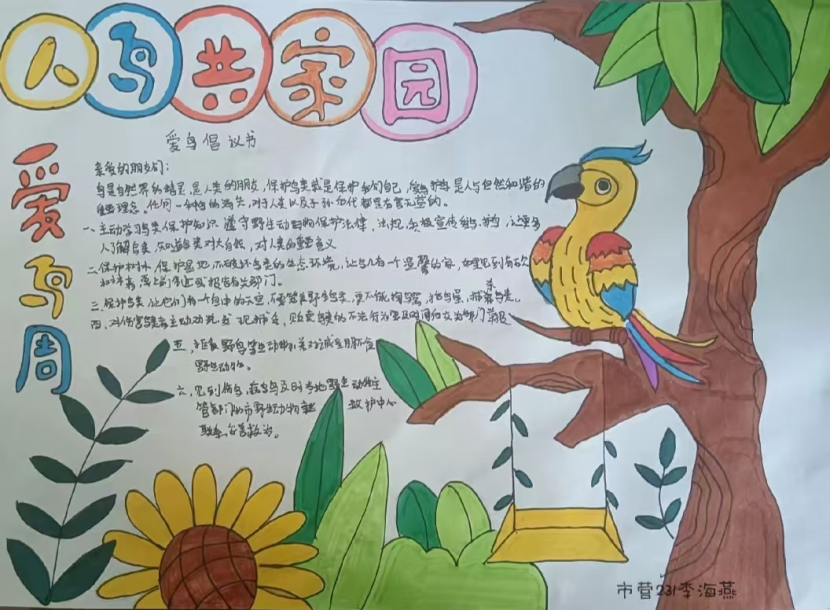 人鸟共家园
爱鸟周
爱鸟倡议书
亲爱的朋友们：
鸟是自然界的精灵，是人类的朋友，保护鸟类就是保护我们自己，爱鸟护鸟是人与自然和谐的
重要理念。任何一种鸟的消失，对于人类以及子孙后代都是有害无益的。
一、主动学习鸟类保护知识 遵守野生动物保护法律，法规，积极宣传爱鸟、护鸟，让更多
人了解鸟类，知道鸟类对大自然，对人类的重要意义
二、保护树林，保护湿地，不破坏鸟类的生态环境，让鸟儿有个温馨的家，如遇见到有砍
伐林木 上前制止或报告有关部门。
三、保护鸟类，让他们有一个自由的天空，不要笼养野鸟类，更不能掏鸟窝，捣鸟蛋，捕杀鸟类。
四、对伤害鸟类者主动劝说，发现捕杀，贩卖鸟类的不法行为要及时向有关部门举报
五、拒食野鸟等野生动物
野生动物。
六、见到伤鸟，病鸟及时与当地野生动物主
管部门或市野生动物 救护中心
联系，妥善救治。
市营231李海燕